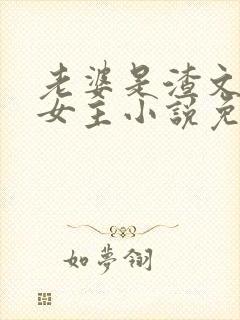 老婆是渣文
女主小說免
如夢翎